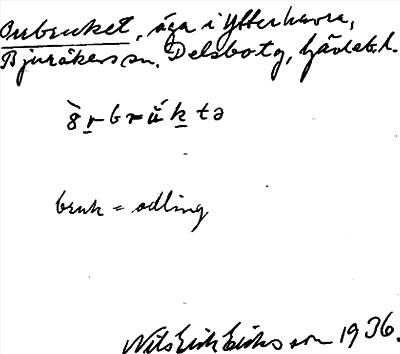 Orrbruket, äga i Ytterhavra,
Bjuråkers sn. Delsbo tg, Gävleb. l.
òrbrúktə
bruk = odling
Nils Erik Eriksson 1936.